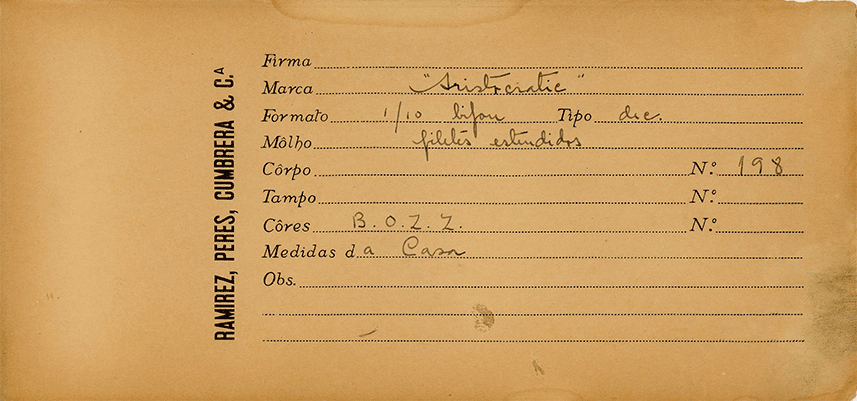 RAMIREZ, PERES, CUMBRERA & C.ᴬ
Firma
Marca "Aristocratic"
Formato 1/10 bijou Tipo dec.
Môlho filetes estendidos
Côrpo N.º 198
Tampo N.º
Côres B.O.Z.Z. N.º
Medidas da Casa
Obs.